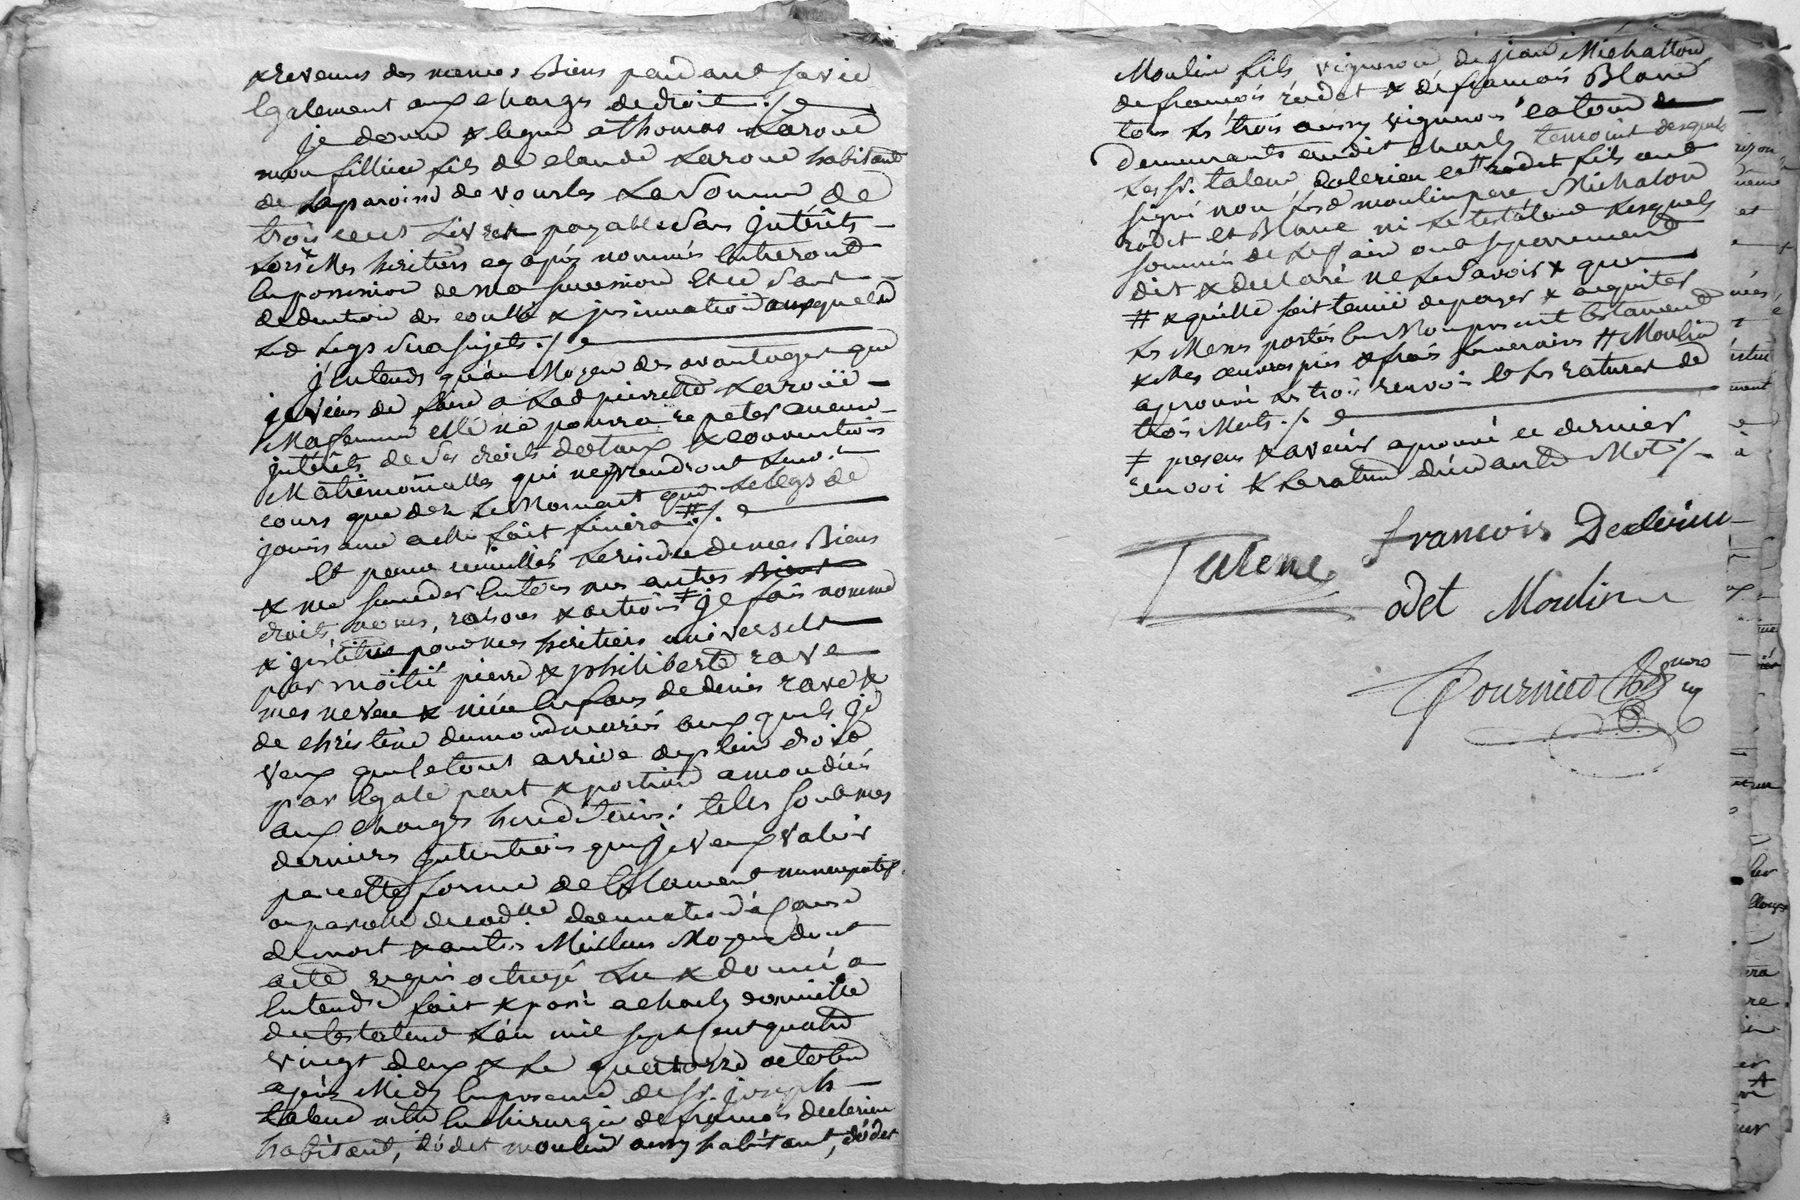 & revenus des memes Biens pendant sa vie
Egalement aux charges de droit ./.
je donne & legue a thomas Laroue
mon fillieu fils de claude Laroue habitant
de la paroisse de vourles La Somme de
trois cent Livres payable Sans jntérêts
Lorsq. Mes heritiers cy après nommés Entreront
En possession de ma succession Et ce Sans
deduction des coutts & jnsinuation auxquels
Led Legs Sera Sujets ./.
J'Entends qu'au Moyen des avantages que
je viens de faire a Lad pierrette Laroüe
Ma femme elle ne pourra repeter aucuns
jntérêts de Ses droits dotaux & conventions
Matrimonialles qui ne prendront Leur
cours que dez Le Moment que Le Legs de
jouissance a elle fait finira # ./.
Et pour recueillir Le residu de mes Biens
& me succeder En tous mes autres Biens
droits, noms, raisons & actions ≠ je fais nomme
& jnstitue pour mes heritiers universels
par moitié pierre & philiberte rave
mes neveu & niéce Enfans de denis rave &
de christine dumond mariés aux quels je
veux que le tout arrive de plein droit
par Egale part & portion a moudiés
aux charges hereditaires: telles sont mes
dernieres jntentions que je veux valoir
par cette forme de testament nuncupatif
ou par celle de codlle donnation à cause
de mort & autres Meilleurs Moyens dont
acte requis octroyé Lu & donné a
Entendre fait & passé a charly domicille
du testateur L'an mil sept cent quatre
vingt deux & Le quatorze octobre
après Midy En presence de Sr. joseph
talene Me En chirurgie de françois declerieu
habitant, d'odet moulin aussy habitant, d'odet
Moulin fils vigneron de jean Michallon
de françois rodet & de françois Blanc
tous Les trois aussy vignerons Et tous
demeurants audit charly temoins desquels
Les Sr. talene declerieu et odet fils ont
signé non Led moulin pere Michalon
rodet et Blanc ni Le testateur Lesquels
sommés de Le faire ont separement
dit & declaré ne Le Savoir & que
# & qu'elle soit tenuë de payer & acquiter
Les Messes portés En Mon present testament
& Mes œuvres pies & frais funeraires # Moulin
aprouvé Les trois renvois Et Les ratures de
trois Mots ./.
≠ presens & avenir aprouvé ce dernier
renvoi & La rature d'un autre Mot ./.
Talene françois Declerieu
odet Moulin